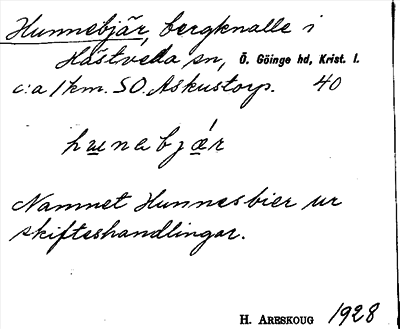 Hunnebjär, bergknalle i
Hästveda sn, Ö. Göinge hd, Krist. l.
c:a 1 km. SO. Askustorp. 40
hunabjár
Namnet Hunnesbier ur
skifteshandlingar.
H. ARESKOUG 1928